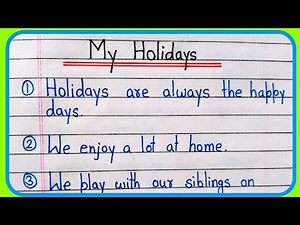 My Holidays
① Holidays are always the happy
days.
② We enjoy a lot at home.
③ We play with our siblings on